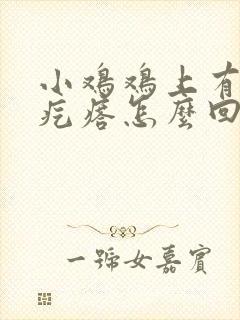 小鸡鸡上有
疙瘩怎麼回
一號女嘉賓